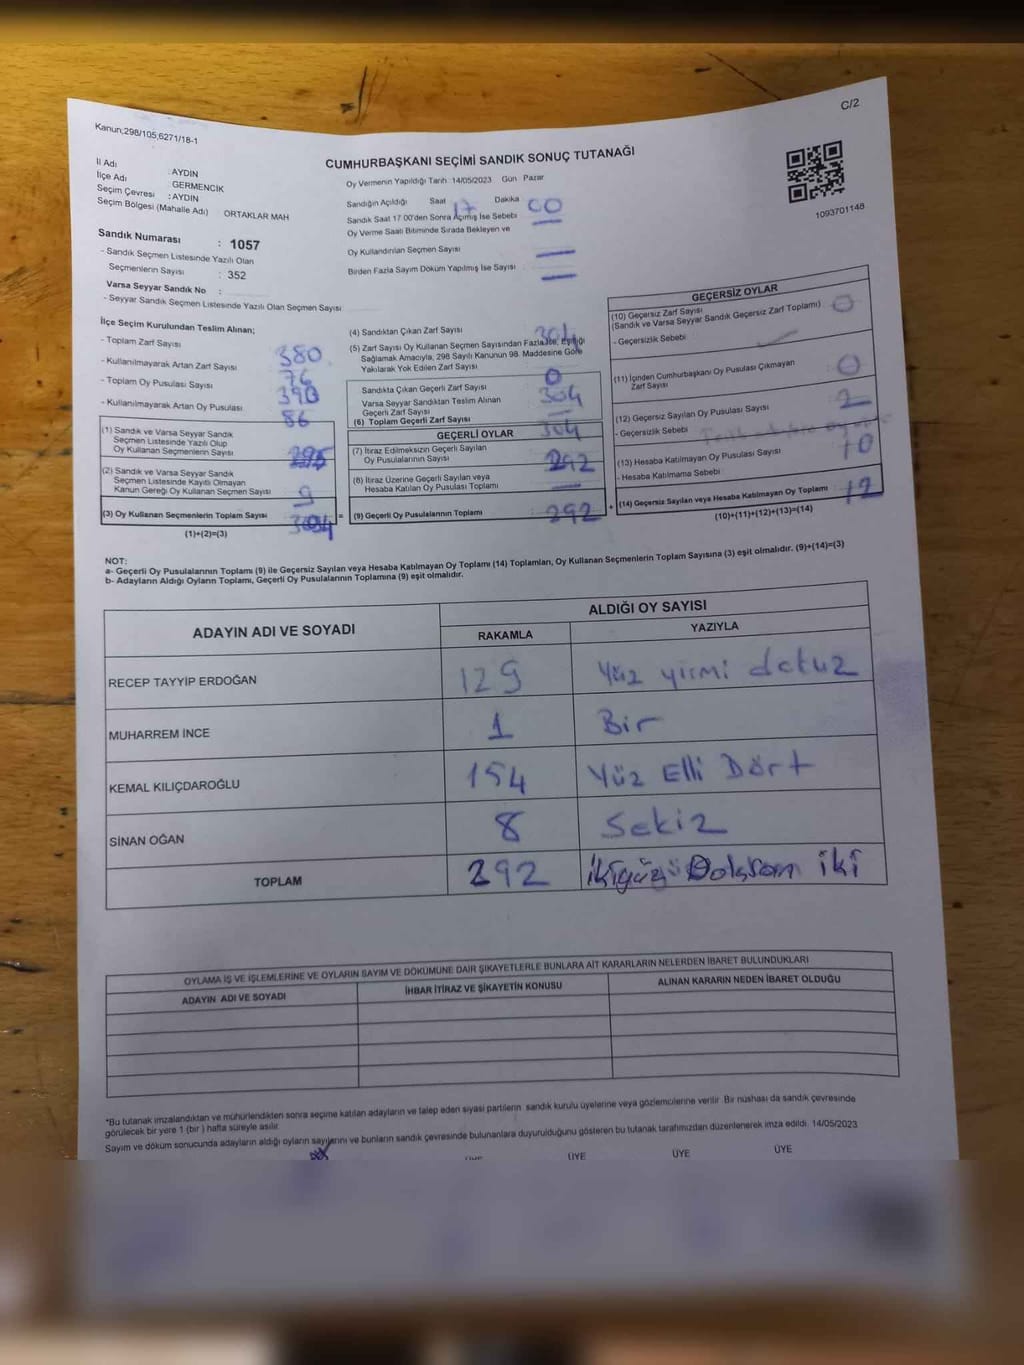 C/2
Kanun;298/105,6271/18-1
CUMHURBAŞKANI SEÇİMİ SANDIK SONUÇ TUTANAĞI
İl Adı : AYDIN
İlçe Adı : GERMENCİK
Seçim Çevresi : AYDIN
Seçim Bölgesi (Mahalle Adı) ORTAKLAR MAH
Sandık Numarası : 1057
- Sandık Seçmen Listesinde Yazılı Olan
Seçmenlerin Sayısı : 352
Varsa Seyyar Sandık No :
- Seyyar Sandık Seçmen Listesinde Yazılı Olan Seçmen Sayısı
Oy Vermenin Yapıldığı Tarih :14/05/2023 Gün Pazar
Sandığın Açıldığı Saat 17 Dakika 00
Sandık Saat 17.00'den Sonra Açılmış İse Sebebi
Oy Verme Saati Bitiminde Sırada Bekleyen ve
Oy Kullandırılan Seçmen Sayısı
Birden Fazla Sayım Döküm Yapılmış İse Sayısı
1093701148
İlçe Seçim Kurulundan Teslim Alınan;
- Toplam Zarf Sayısı 380
- Kullanılmayarak Artan Zarf Sayısı 76
- Toplam Oy Pusulası Sayısı 390
- Kullanılmayarak Artan Oy Pusulası 86
(1) Sandık ve Varsa Seyyar Sandık
Seçmen Listesinde Yazılı Olup
Oy Kullanan Seçmenlerin Sayısı 295
(2) Sandık ve Varsa Seyyar Sandık
Seçmen Listesinde Kayıtlı Olmayan
Kanun Gereği Oy Kullanan Seçmen Sayısı 9
(3) Oy Kullanan Seçmenlerin Toplam Sayısı 304 =
(1)+(2)=(3)
(4) Sandıktan Çıkan Zarf Sayısı 304
(5) Zarf Sayısı Oy Kullanan Seçmen Sayısından Fazla İse, Eşitliği
Sağlamak Amacıyla, 298 Sayılı Kanunun 98. Maddesine Göre
Yakılarak Yok Edilen Zarf Sayısı 0
Sandıkta Çıkan Geçerli Zarf Sayısı 304
Varsa Seyyar Sandıktan Teslim Alınan
Geçerli Zarf Sayısı
(6) Toplam Geçerli Zarf Sayısı 304
GEÇERLİ OYLAR
(7) İtiraz Edilmeksizin Geçerli Sayılan
Oy Pusulalarının Sayısı 292
(8) İtiraz Üzerine Geçerli Sayılan veya
Hesaba Katılan Oy Pusulası Toplamı
(9) Geçerli Oy Pusulalarının Toplamı 292 +
GEÇERSİZ OYLAR
(10) Geçersiz Zarf Sayısı
(Sandık ve Varsa Seyyar Sandık Geçersiz Zarf Toplamı) 0
- Geçersizlik Sebebi
(11) İçinden Cumhurbaşkanı Oy Pusulası Çıkmayan
Zarf Sayısı 0
(12) Geçersiz Sayılan Oy Pusulası Sayısı 2
- Geçersizlik Sebebi
(13) Hesaba Katılmayan Oy Pusulası Sayısı 10
- Hesaba Katılmama Sebebi
(14) Geçersiz Sayılan veya Hesaba Katılmayan Oy Toplamı 12
(10)+(11)+(12)+(13)=(14)
NOT:
a- Geçerli Oy Pusulalarının Toplamı (9) ile Geçersiz Sayılan veya Hesaba Katılmayan Oy Toplamı (14) Toplamları, Oy Kullanan Seçmenlerin Toplam Sayısına (3) eşit olmalıdır. (9)+(14)=(3)
b- Adayların Aldığı Oyların Toplamı, Geçerli Oy Pusulalarının Toplamına (9) eşit olmalıdır.
ADAYIN ADI VE SOYADI ALDIĞI OY SAYISI
RAKAMLA YAZIYLA
RECEP TAYYİP ERDOĞAN 129 Yüz yirmi dokuz
MUHARREM İNCE 1 Bir
KEMAL KILIÇDAROĞLU 154 Yüz Elli Dört
SİNAN OĞAN 8 Sekiz
TOPLAM 292 İkiyüz Doksan iki
OYLAMA İŞ VE İŞLEMLERİNE VE OYLARIN SAYIM VE DÖKÜMÜNE DAİR ŞİKAYETLERLE BUNLARA AİT KARARLARIN NELERDEN İBARET BULUNDUKLARI
ADAYIN ADI VE SOYADI İHBAR İTİRAZ VE ŞİKAYETİN KONUSU ALINAN KARARIN NEDEN İBARET OLDUĞU
*Bu tutanak imzalandıktan ve mühürlendikten sonra seçime katılan adayların ve talep eden siyasi partilerin sandık kurulu üyelerine veya gözlemcilerine verilir. Bir nüshası da sandık çevresinde
görülecek bir yere 1 (bir ) hafta süreyle asılır.
Sayım ve döküm sonucunda adayların aldığı oyların sayılarını ve bunların sandık çevresinde bulunanlara duyurulduğunu gösteren bu tutanak tarafımızdan düzenlenerek imza edildi. 14/05/2023
ÜYE ÜYE ÜYE ÜYE